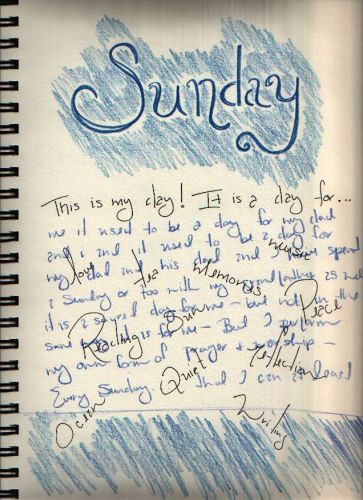 Sunday
This is my day! It is a day for...
me it used to be a day for my dad
and I and it used to be a day for
my dad and his dad and I spend
love tea memories music
a Sunday or too with my grandfather as well
it is a sacred day for me - but not in the
Reading Sun Peace
same is for me - But I perform
my own form of prayer + worship -
Quiet reflection
Every Sunday that I can at least
Ocean Writing